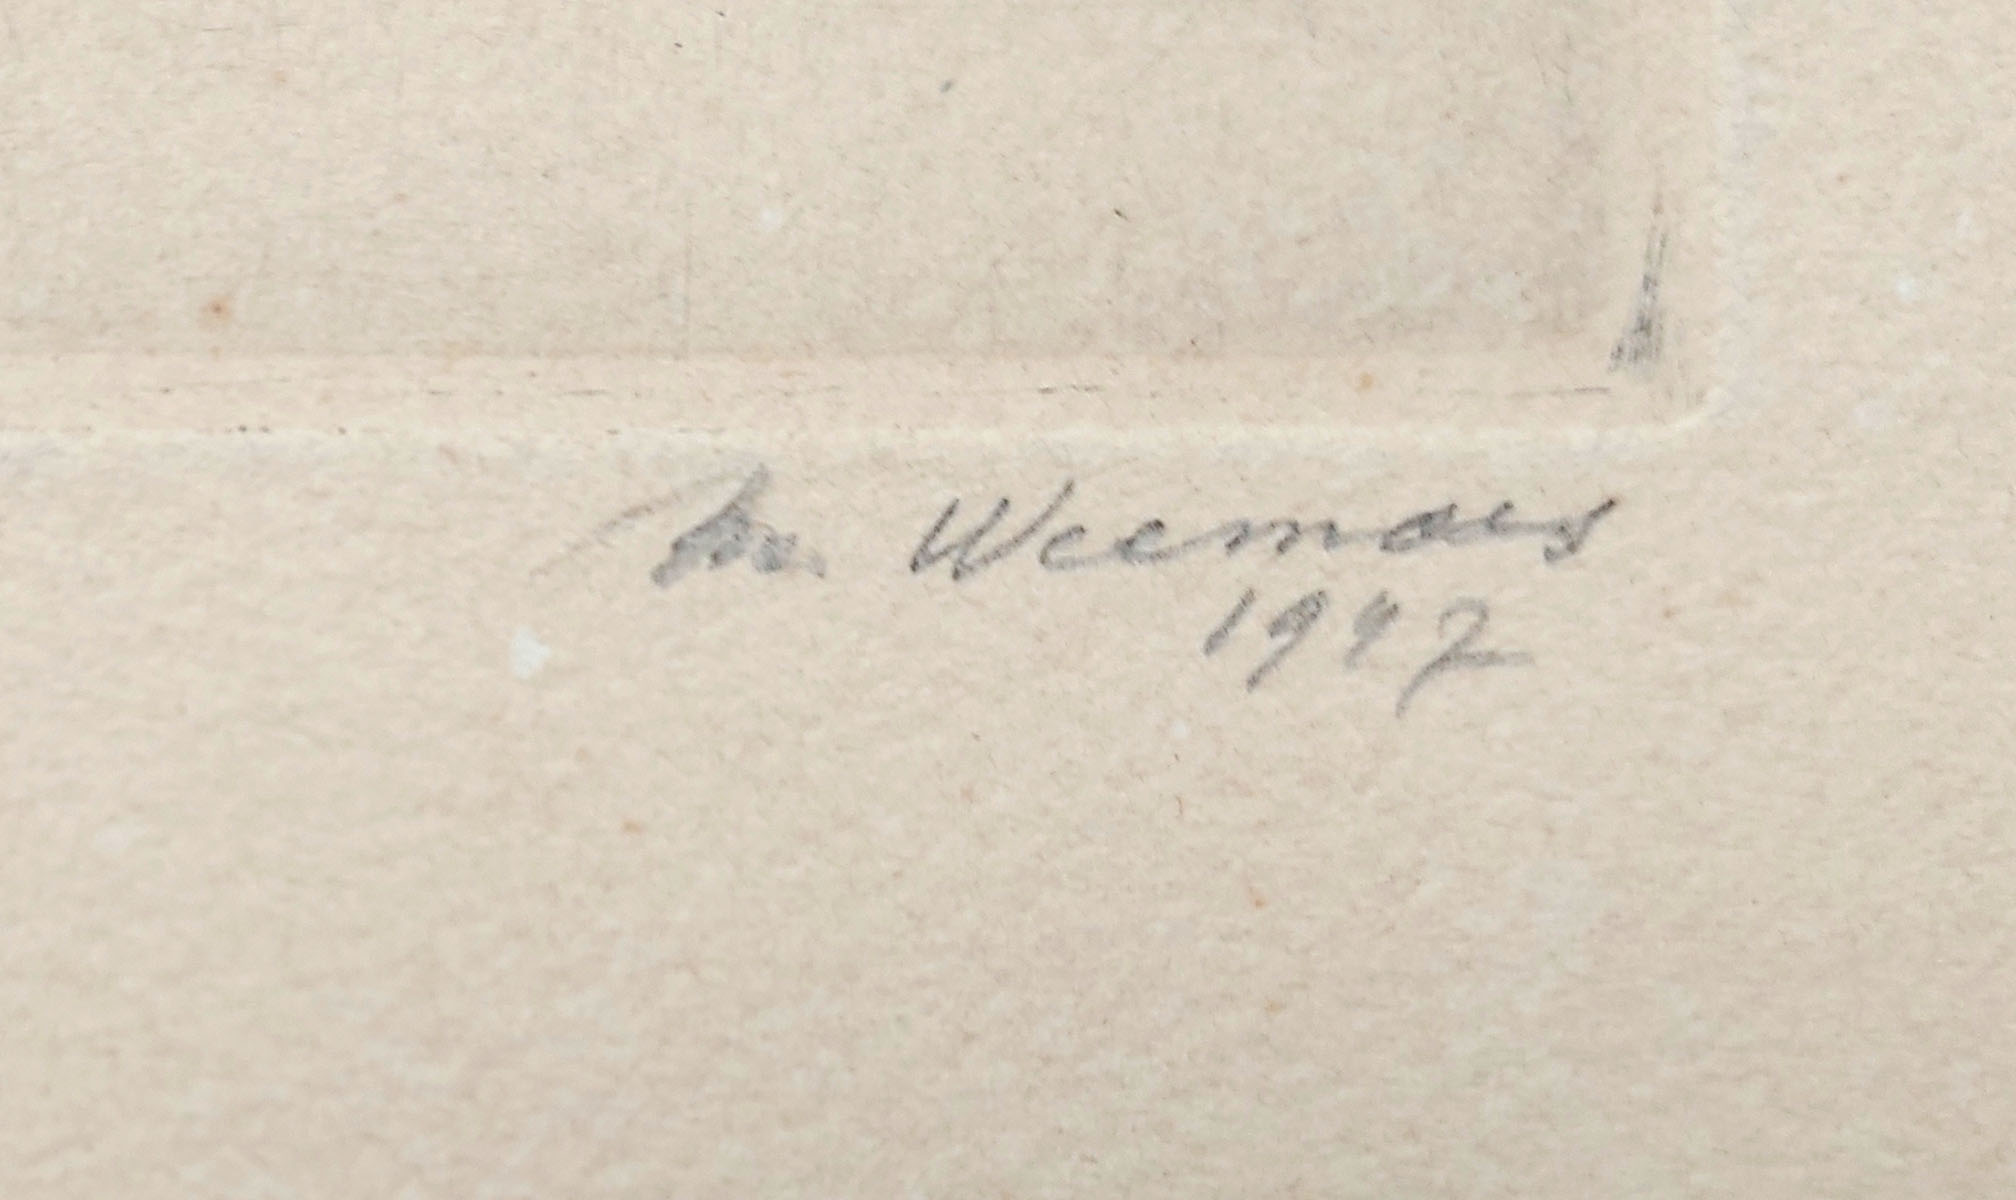 M. Weemaes
1942